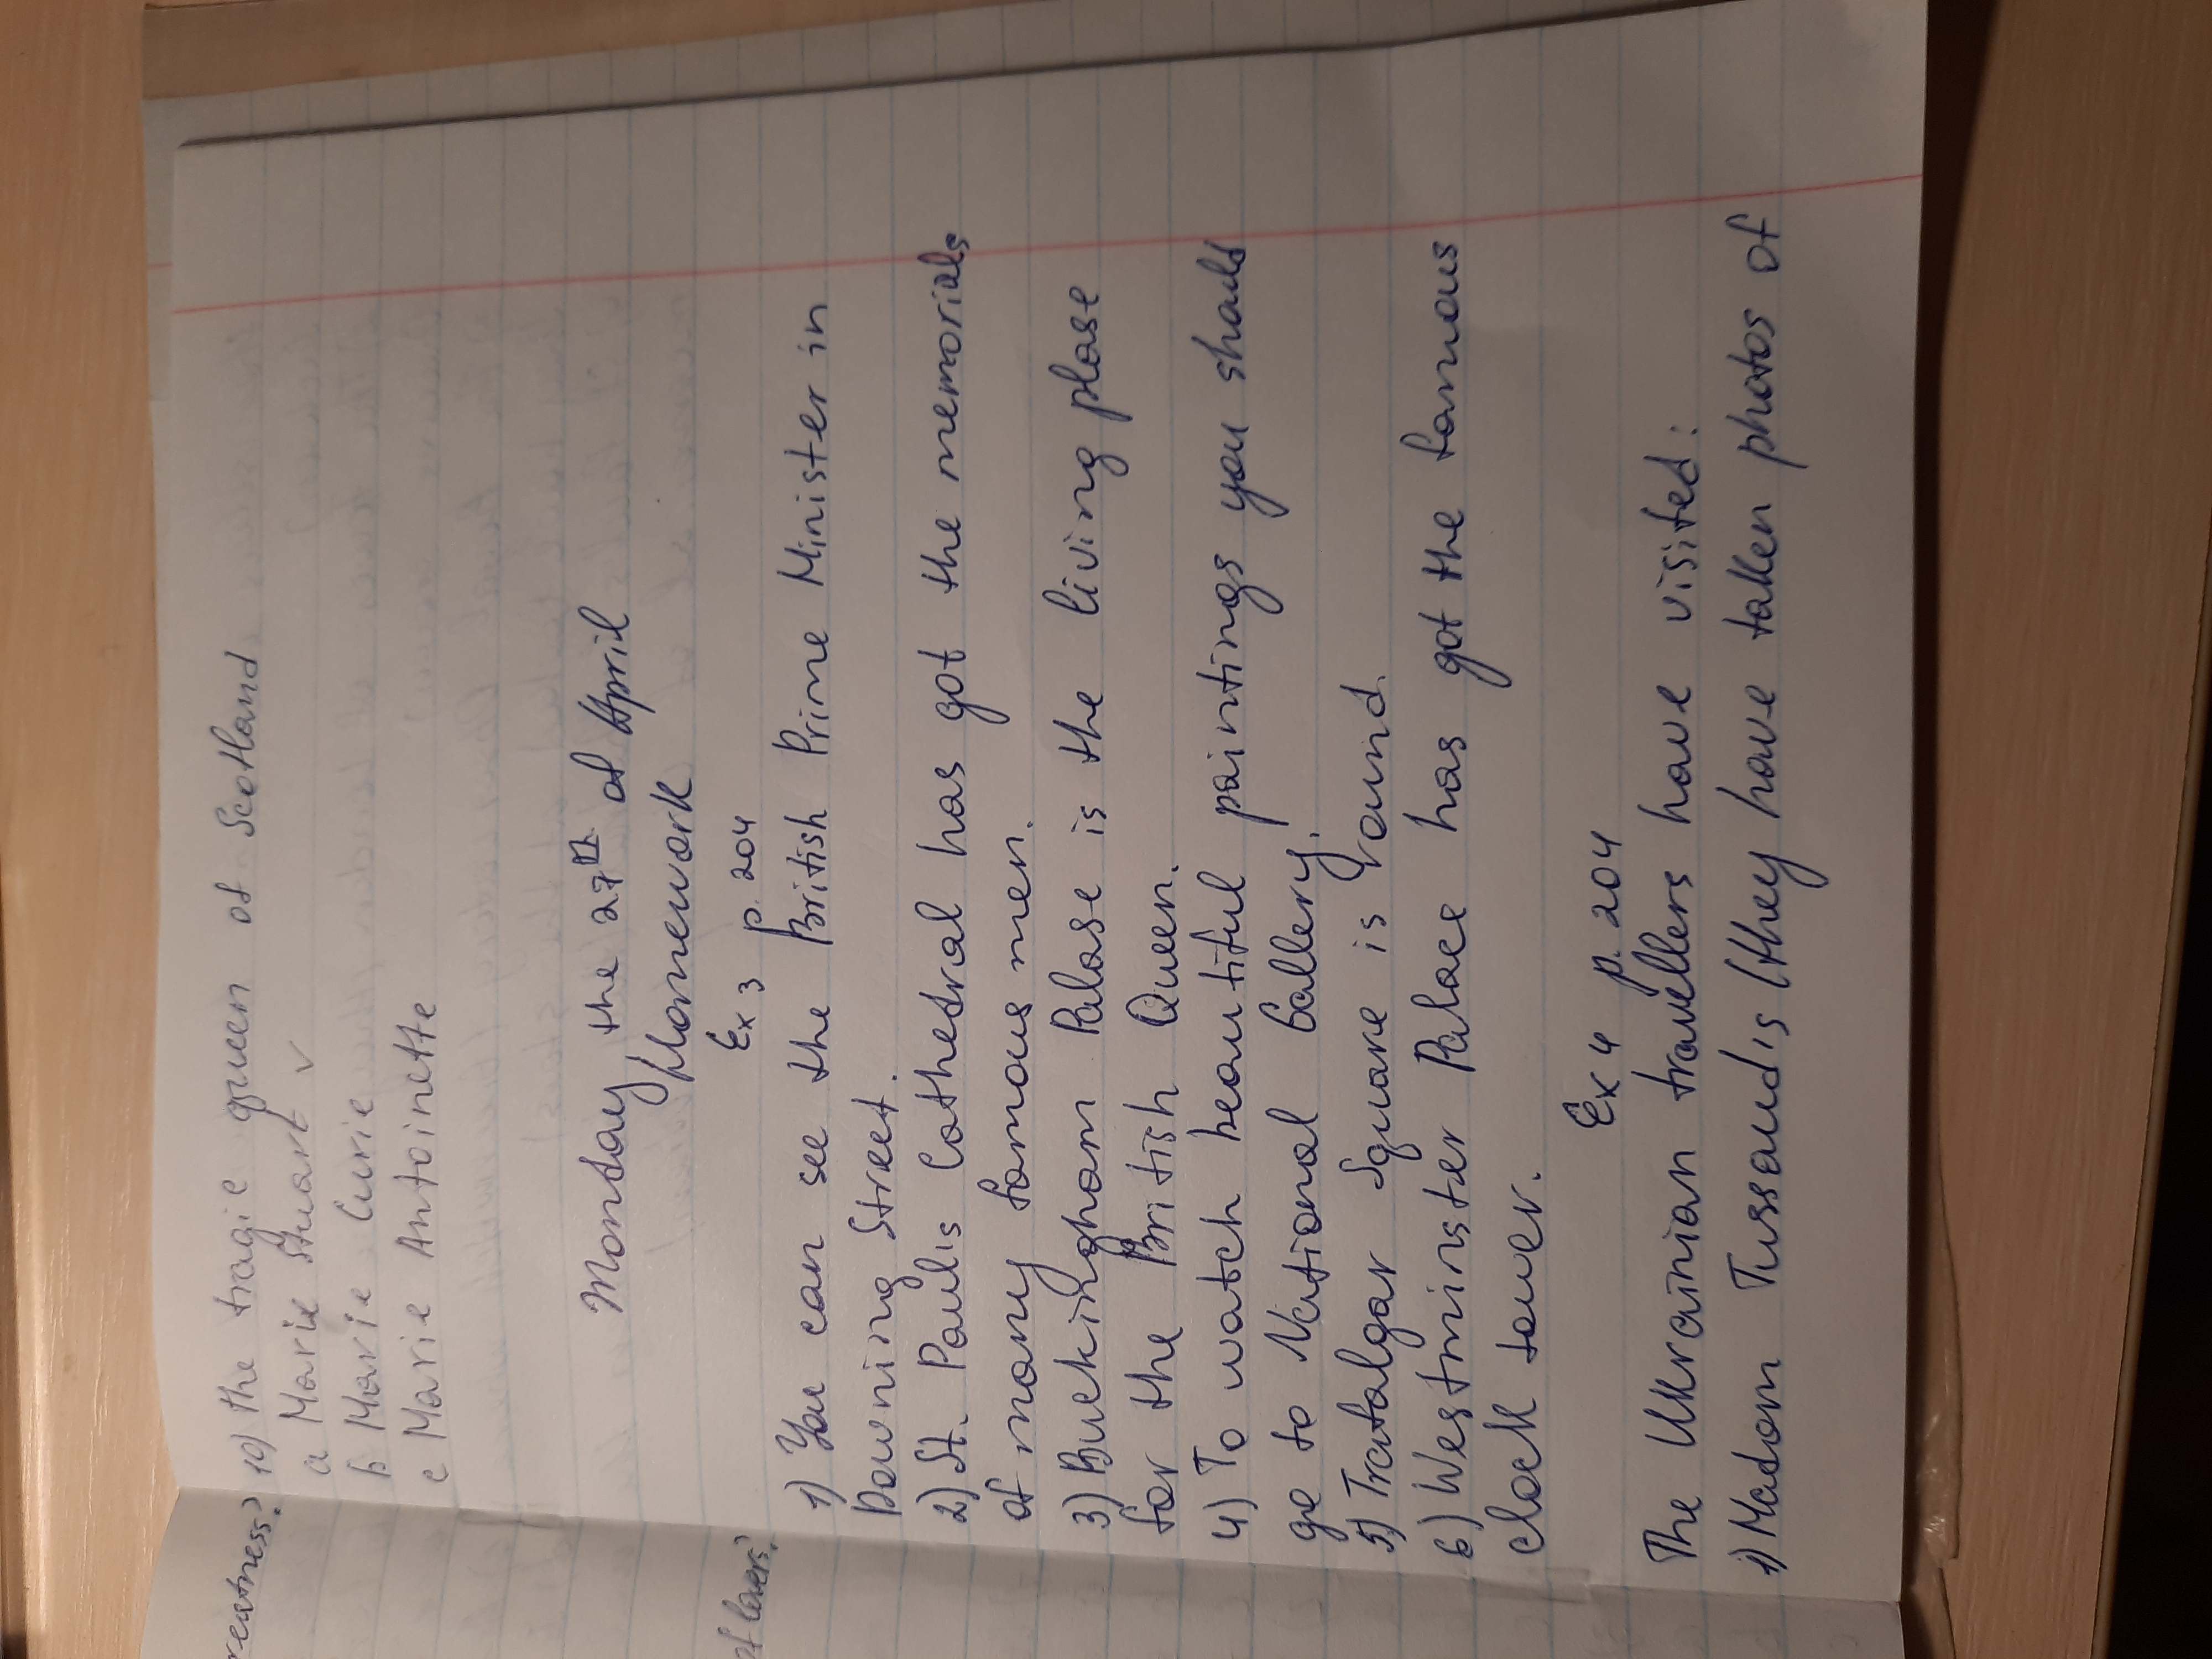 reatness?
of lovers?
10) the tragic queen of Scotland
a Marie Stuart ✓
b Marie Curie
c Marie Antoinette
Monday the 27th of April
Homework
Ex 3 p. 204
1) You can see the British Prime Minister in
Downing Street.
2) St. Paul's Cathedral has got the memorials
of many famous men.
3) Buckingham Palase is the living plase
for the British Queen.
4) To watch beautiful paintings you should
go to National Gallery.
5) Trafalgar Square is round.
6) Westminster Palace has got the famous
clock tower.
Ex 4 p. 204
The Ukrainian travellers have visited:
1) Madam Tussaud's (they have taken photos of